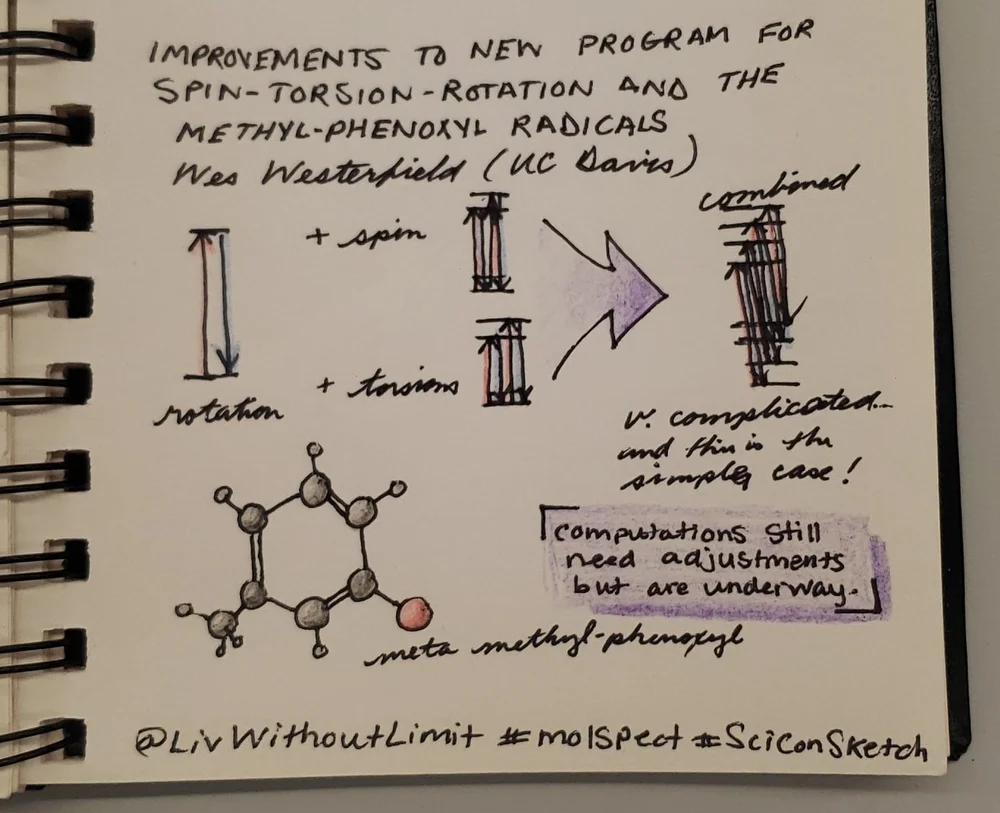 IMPROVEMENTS TO NEW PROGRAM FOR
SPIN-TORSION-ROTATION AND THE
METHYL-PHENOXYL RADICALS
Wes Westerfield (UC Davis)
combined
+ spin
+ torsions
rotation
v. complicated...
and this is the
simple case!
computations still
need adjustments
but are underway.
meta methyl-phenoxyl
@LivWithoutLimit #molspect #SciConSketch